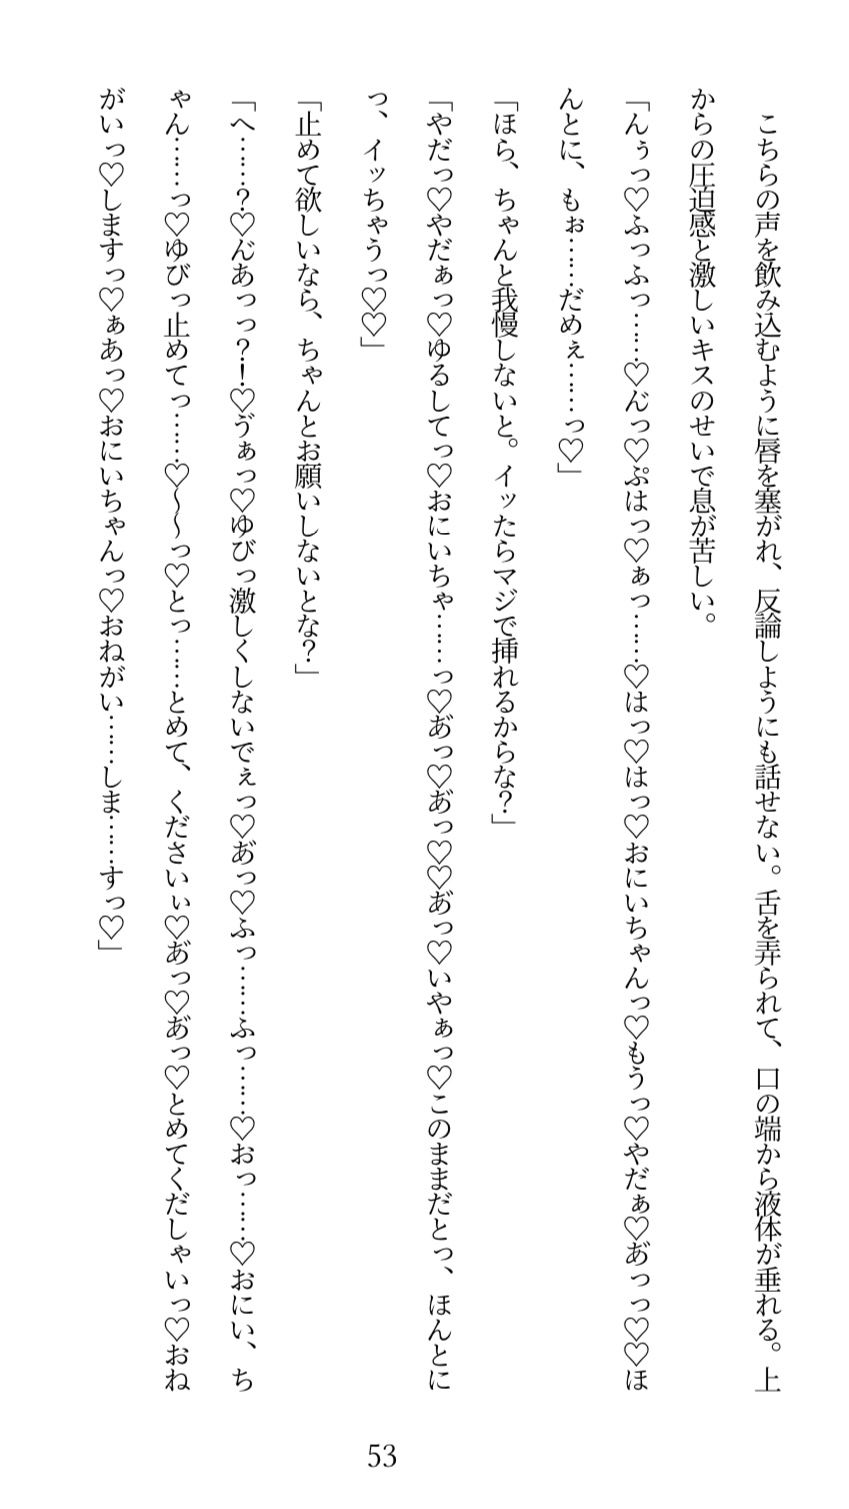 こちらの声を飲み込むように唇を塞がれ、反論しようにも話せない。舌を弄られて、口の端から液体が垂れる。上
からの圧迫感と激しいキスのせいで息が苦しい。
「んぅっ♡ふっふっ……♡ん゙っ♡ぷはっ♡ぁっ……♡はっ♡はっ♡おにいちゃんっ♡もうっ♡やだぁ♡あ゙っっ♡♡ほ
んとに、もぉ……だめぇ……っ♡」
「ほら、ちゃんと我慢しないと。イッたらマジで挿れるからな？」
「やだっ♡やだぁっ♡ゆるしてっ♡おにいちゃ……っ♡あ゙っ♡あ゙っ♡♡あ゙っ♡いやぁっ♡このままだとっ、ほんとに
っ、イッちゃうっ♡♡」
「止めて欲しいなら、ちゃんとお願いしないとな？」
「へ……？♡ん゙あっっ？！♡ゔぁっ♡ゆびっ激しくしないでぇっ♡あ゙っ♡ふっ……ふっ……♡おっ……♡おにい、ち
ゃん……っ♡ゆびっ止めてっ……♡～～っ♡とっ……とめて、くださいぃ♡あ゙っ♡あ゙っ♡とめてくだしゃいっ♡おね
がいっ♡しますっ♡ぁあっ♡おにいちゃんっ♡おねがい……しま……すっ♡」
53